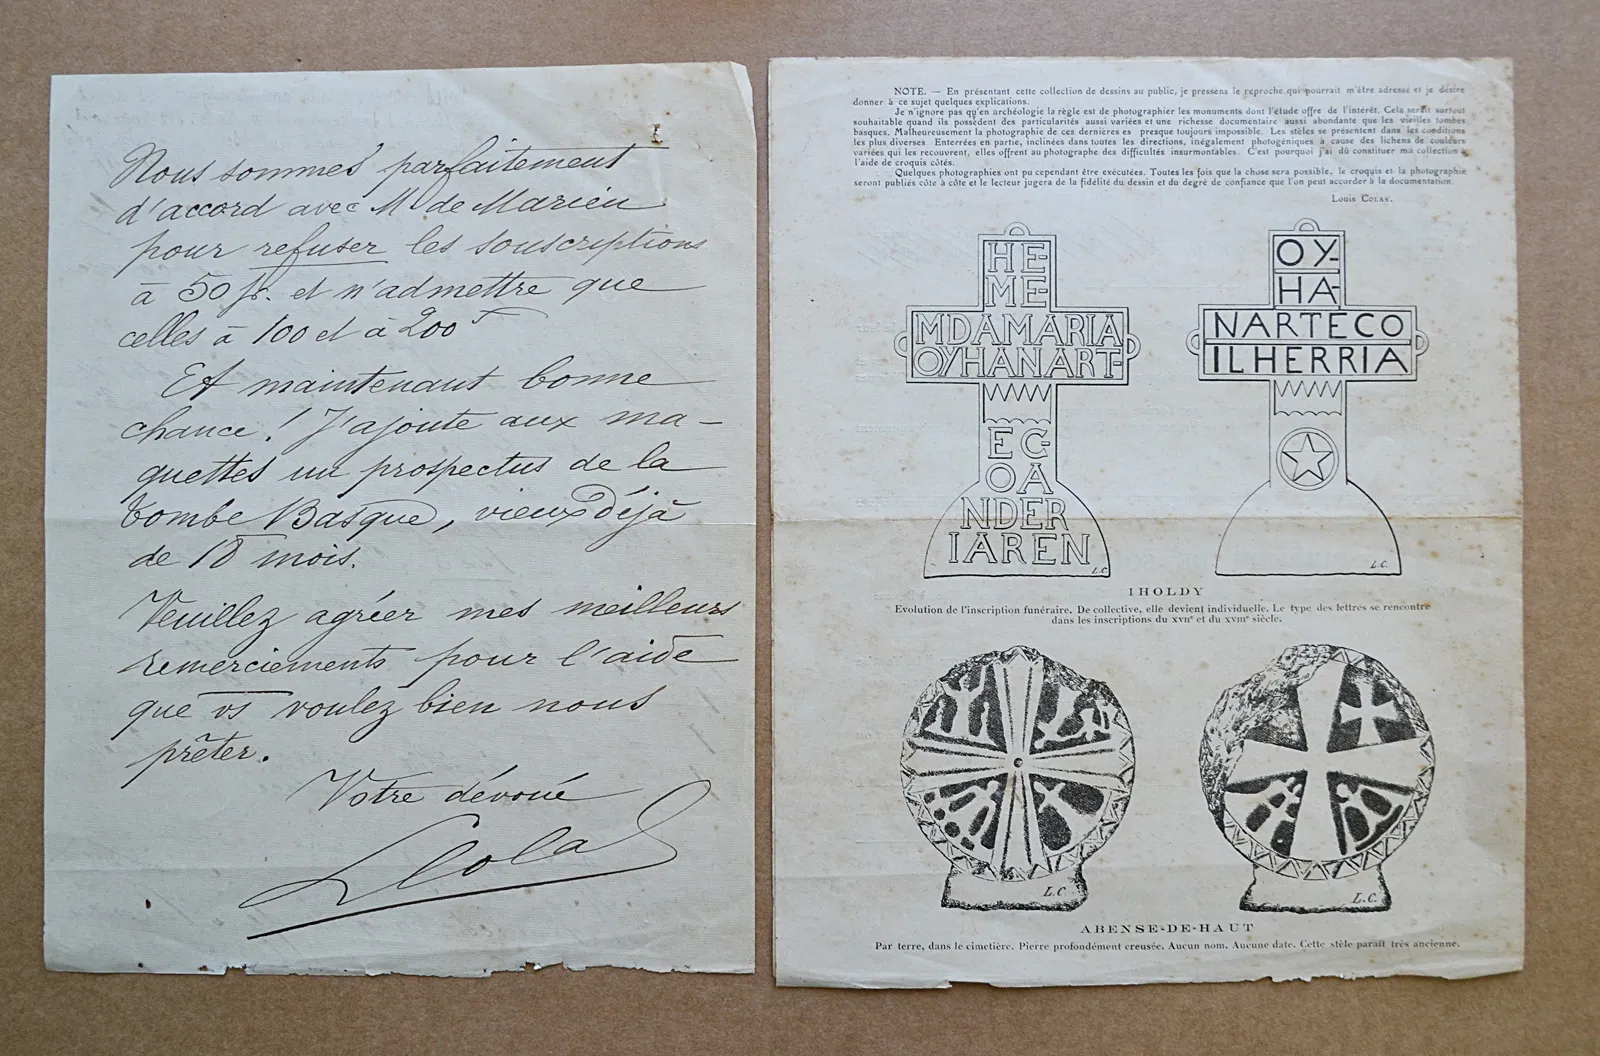 Nous sommes parfaitement
d'accord avec M de Marien
pour refuser les souscriptions
à 50 fr. et n'admettre que
celles à 100 et à 200 f
Et maintenant bonne
chance ! J'ajoute aux ma-
quettes un prospectus de la
tombe Basque, vieux déjà
de 18 mois.
Veuillez agréer mes meilleurs
remerciements pour l'aide
que vs voulez bien nous
prêter.
Votre dévoué
LColas
NOTE. — En présentant cette collection de dessins au public, je pressens le reproche qui pourrait m'être adressé et je désire
donner à ce sujet quelques explications.
Je n'ignore pas qu'en archéologie la règle est de photographier les monuments dont l'étude offre de l'intérêt. Cela serait surtout
souhaitable quand ils possèdent des particularités aussi variées et une richesse documentaire aussi abondante que les vieilles tombes
basques. Malheureusement la photographie de ces dernières es presque toujours impossible. Les stèles se présentent dans les conditions
les plus diverses. Enterrées en partie, inclinées dans toutes les directions, inégalement photogéniques à cause des lichens de couleurs
variées qui les recouvrent, elles offrent au photographe des difficultés insurmontables. C'est pourquoi j'ai dû constituer ma collection à
l'aide de croquis côtés.
Quelques photographies ont pu cependant être exécutées. Toutes les fois que la chose sera possible, le croquis et la photographie
seront publiés côte à côte et le lecteur jugera de la fidélité du dessin et du degré de confiance que l'on peut accorder à la documentation.
Louis COLAS.
HE-
ME-
MDAMARIA
OYHANART-
EC-
OA
NDER
IAREN
L.C.
OY-
HA-
NARTECO
ILHERRIA
L.C.
IHOLDY
Evolution de l'inscription funéraire. De collective, elle devient individuelle. Le type des lettres se rencontre
dans les inscriptions du XVIIe et du XVIIIe siècle.
L.C.
L.C.
ABENSE-DE-HAUT
Par terre, dans le cimetière. Pierre profondément creusée. Aucun nom. Aucune date. Cette stèle paraît très ancienne.